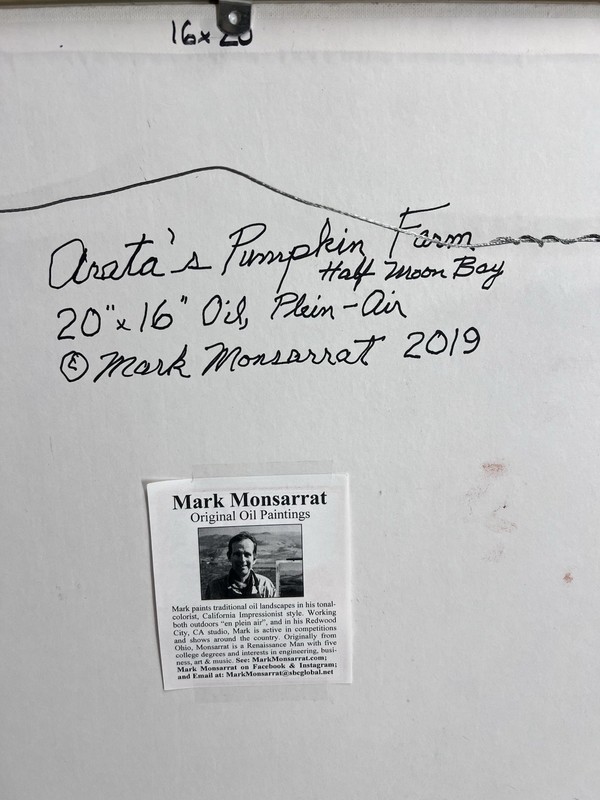 16x 20
Arata's Pumpkin Farm
Half Moon Bay
20"x16" Oil, Plein-Air
© Mark Monsarrat 2019
Mark Monsarrat
Original Oil Paintings
Mark paints traditional oil landscapes in his tonal-
colorist, California Impressionist style. Working
both outdoors "en plein air", and in his Redwood
City, CA studio, Mark is active in competitions
and shows around the country. Originally from
Ohio, Monsarrat is a Renaissance Man with five
college degrees and interests in engineering, busi-
ness, art & music. See: MarkMonsarrat.com;
Mark Monsarrat on Facebook & Instagram;
and Email at: MarkMonsarrat@sbcglobal.net